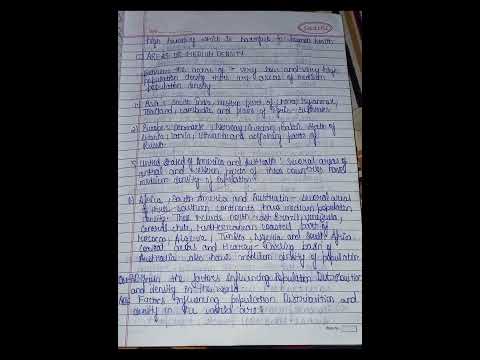 high humidity which is harmful to human health
C) AREAS OF MEDIUM DENSITY
between the areas of very low and very high
population density there are areas of medium
population density
1) Asia: South India, western part of China, Myanmar,
Thailand, Cambodia and plains of
2) Europe: Denmark, Norway, Sweden, Baltic State of
Estonia, Latvia, Lithuania and adjoining parts of
Russia
3) United States of America and Australia: Several areas of
central and western parts of these countries have
medium density of population
4) Africa, South America and Australia - Several areas
of these southern continents have medium population
density. These include north east Brazil, Venezuela,
central Chile, Mediterranean coastal part of
Morocco, Algeria, Tunisia, Nigeria and South Africa
central areas and Murray - Darling basin of
Australia also have medium density of population
the factors influencing Population Distribution
and density in the world
Ans Factors influencing population Distribution and
density in the world are: